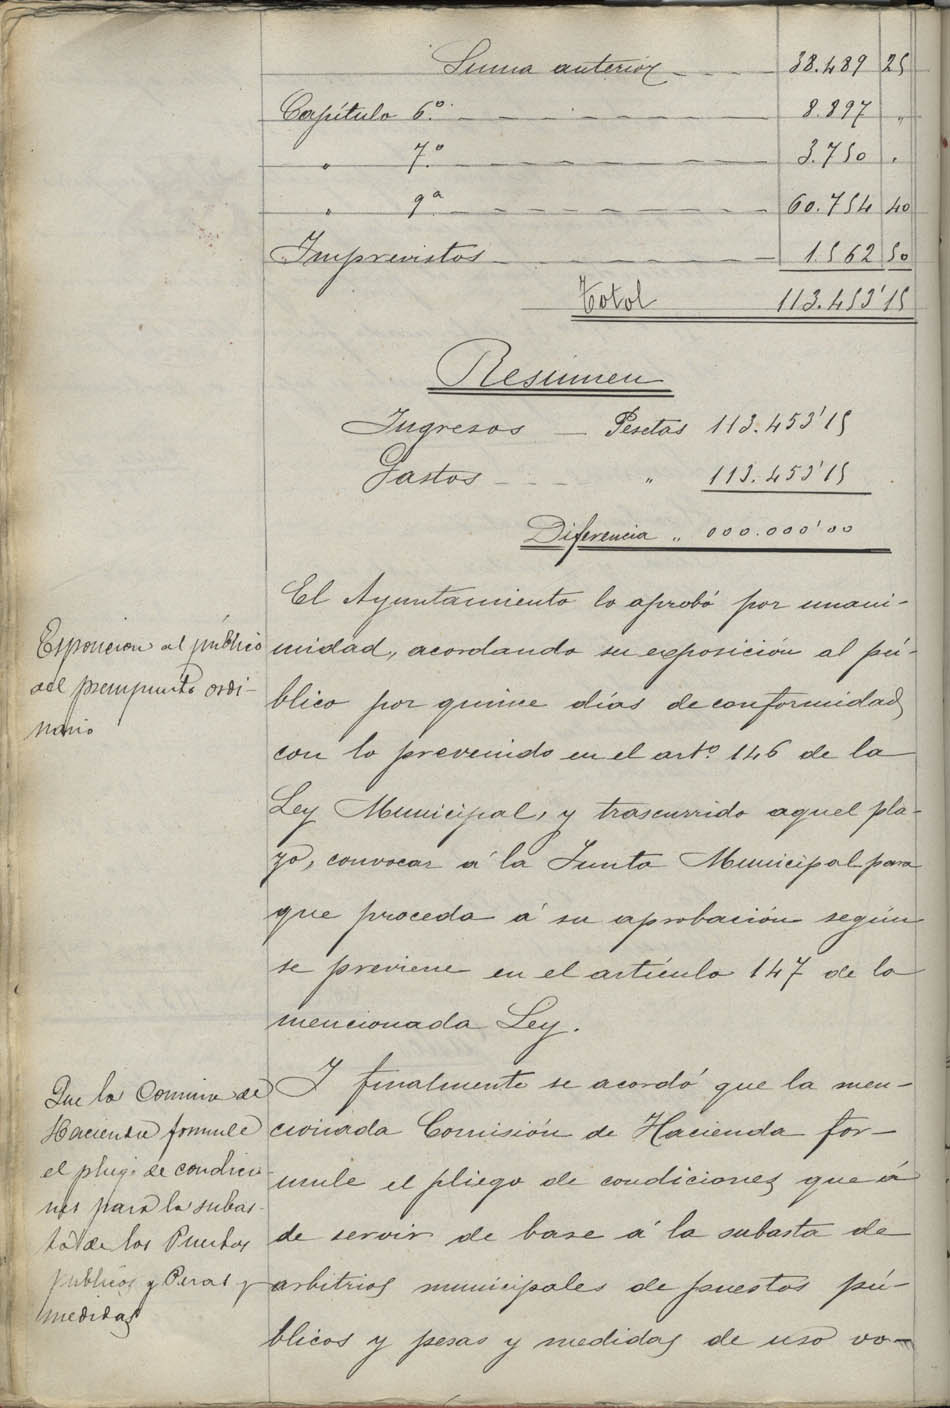 Suma anterior 38.489 25
Capítulo 6.º 8.897 "
" 7.º 3.750 "
" 9.ª 60.754 40
Imprevistos 1.562 50
Total 113.453'15
Resumen
Ingresos Pesetas 113.453'15
Gastos " 113.453'15
Diferencia " 000.000'00
El Ayuntamiento lo aprobó por unani-
midad, acordando su exposición al pú-
blico por quince días de conformidad
con lo prevenido en el artº 146 de la
Ley Municipal, y trascurrido aquel pla-
zo, convocar á la Junta Municipal para
que proceda á su aprobación según
se previene en el artículo 147 de la
mencionada Ley.
Esposicion al público
del presupuesto ordi-
nario
Y finalmente se acordó que la men-
cionada Comisión de Hacienda for-
mule el pliego de condiciones que á
de servir de base á la subasta de
arbitrios municipales de puestos pú-
blicos y pesas y medidas de uso vo-
Que la Comision de
Hacienda formule
el pliego de condicio-
nes para la subas-
ta de los Puestos
publicos y Pesas y
medidas